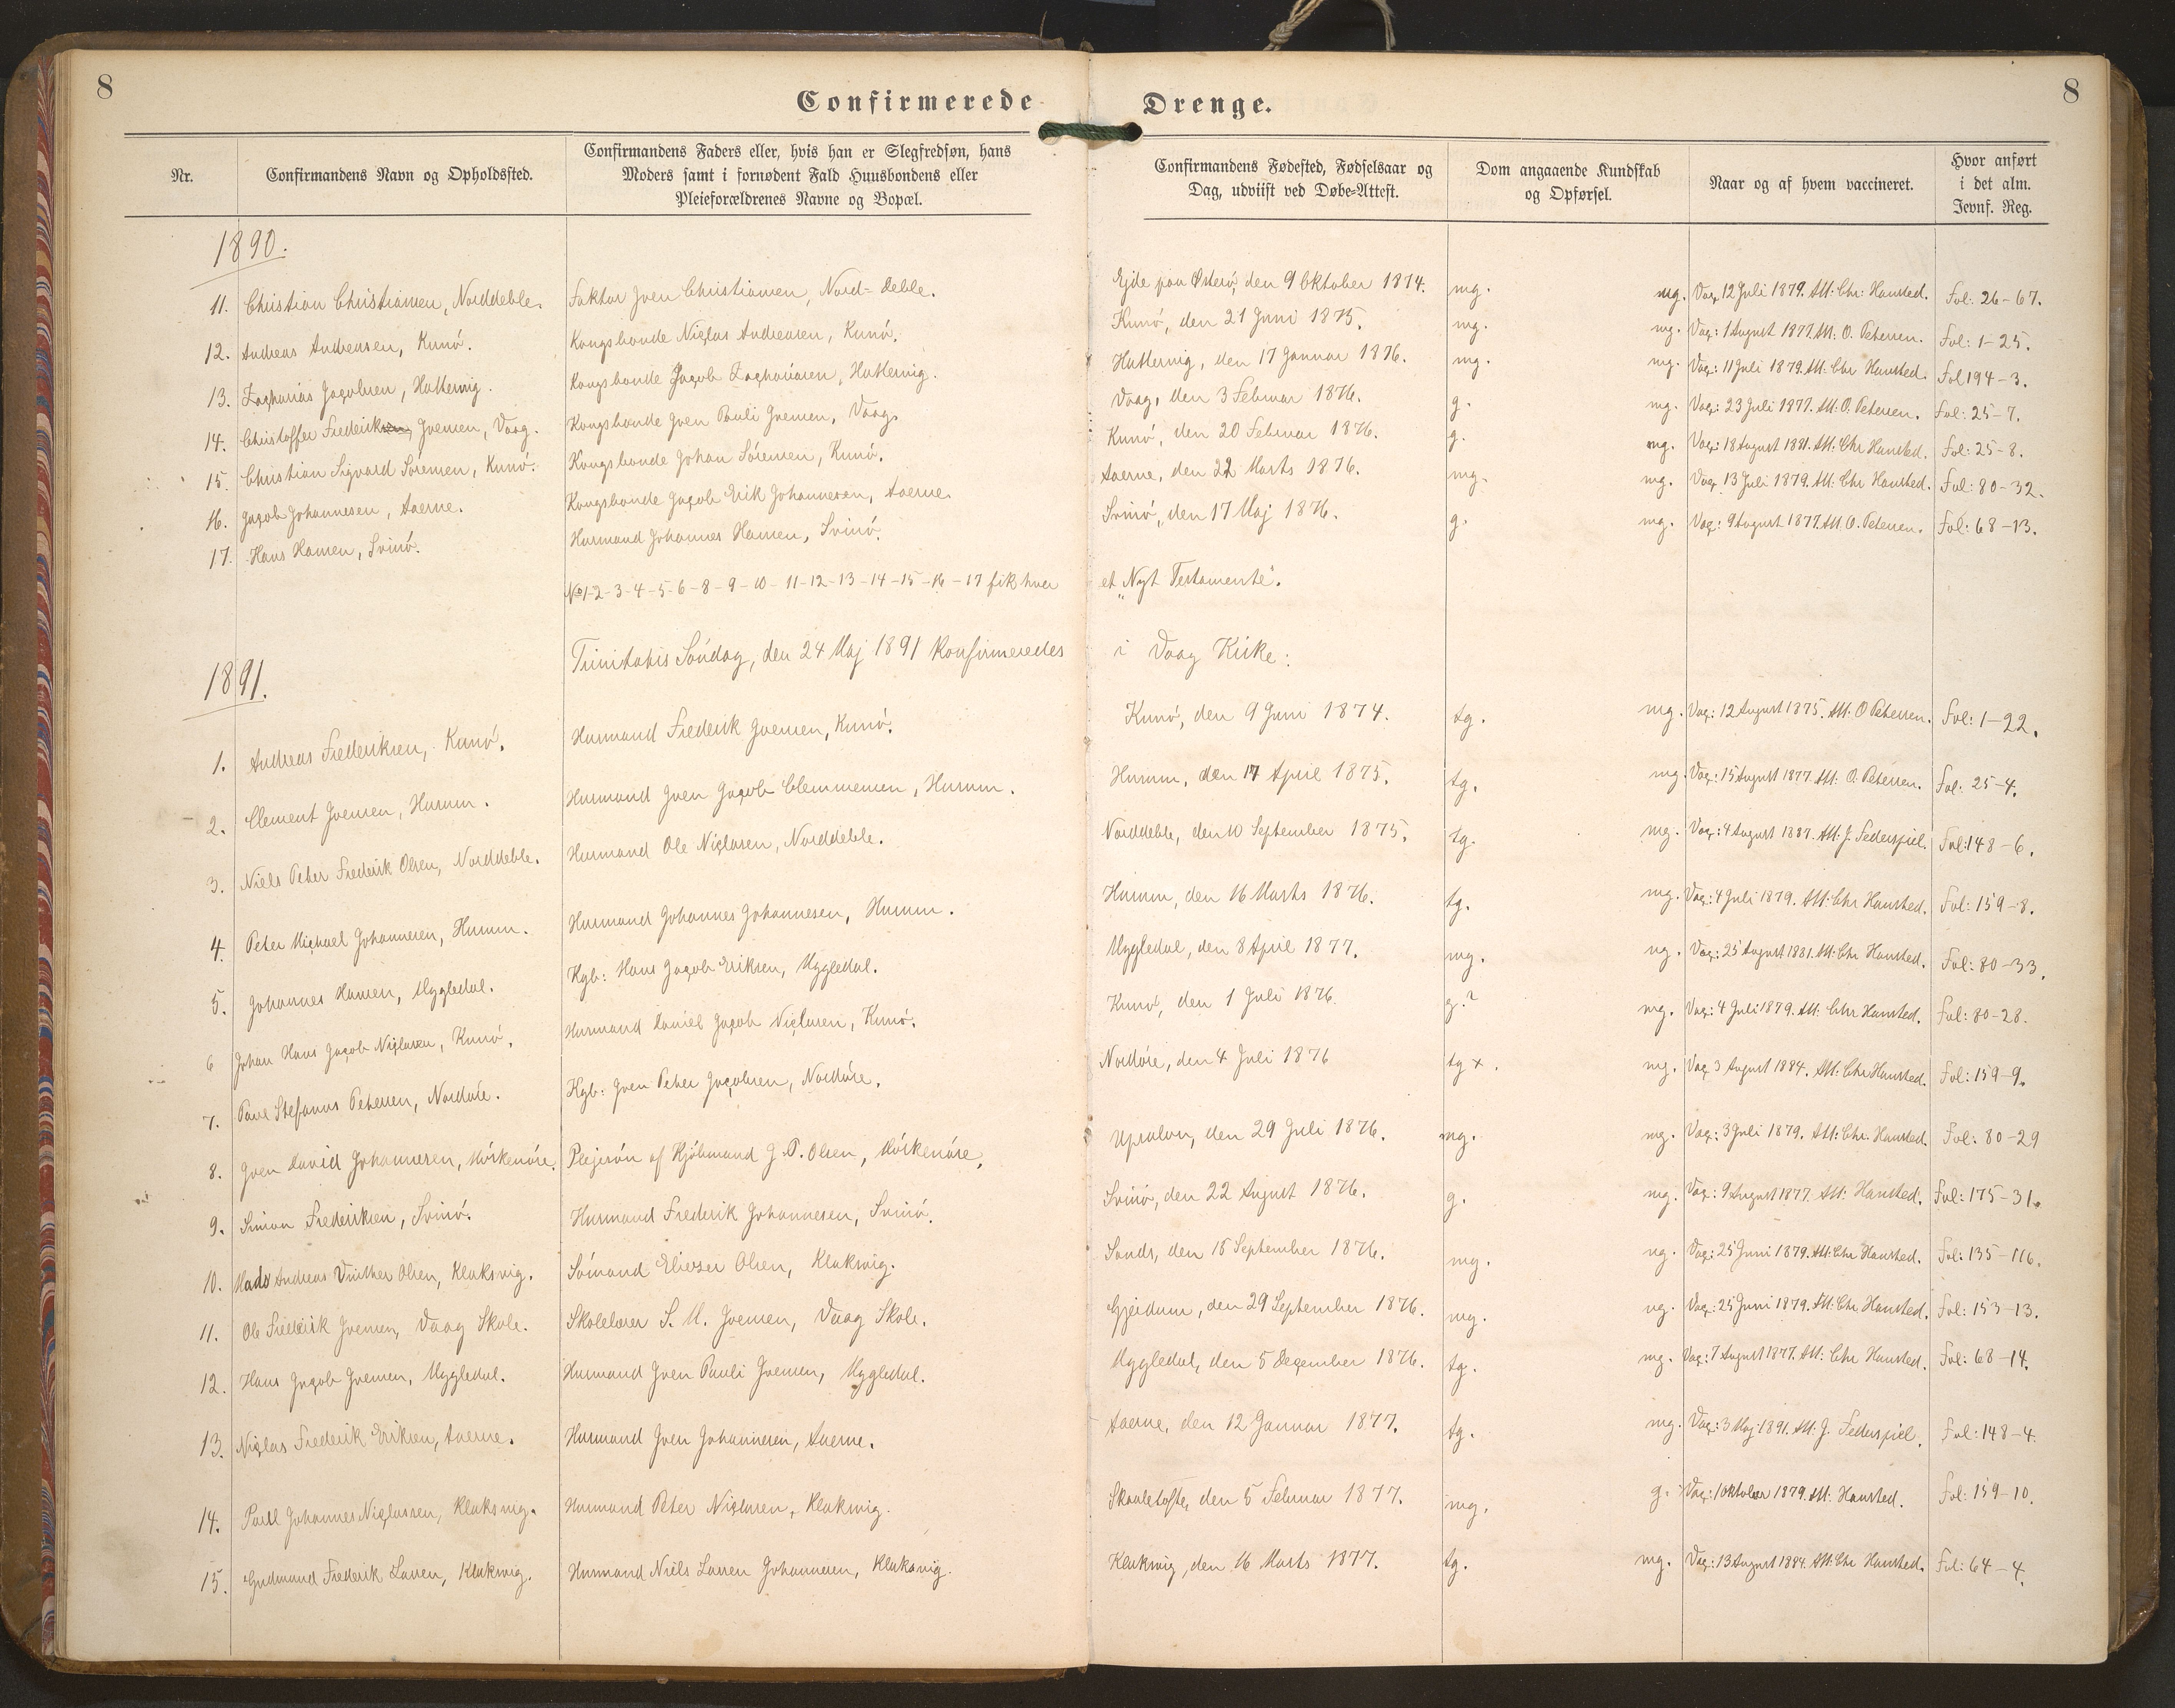 8
Confirmerede Drenge.
8
Nr.
Confirmandens Navn og Opholdssted.
Confirmandens Faders eller, hvis han er Slegfredsøn, hans
Moders samt i fornødent Fald Huusbondens eller
Pleieforældrenes Navne og Bopæl.
Confirmandens Fødested, Fødselsaar og
Dag, udviist ved Døbe-Attest.
Dom angaaende Kundskab
og Opførsel.
Naar og af hvem vaccineret.
Hvor anført
i det alm.
Jevnf. Reg.
1890.
11. Christian Christiansen, Norddeble. Faktor Joen Christiansen, Nord-deble. Ejde paa Østerø, den 9 Oktober 1874. mg. mg. Vac. 12 Juli 1879. Att: Chr: Hansted. Fol: 26-67.
12. Andreas Andreasen, Kunø. Kongsbonde Niclas Andreasen, Kunø. Kunø, den 21 Juni 1875. mg. mg. Vac: 1 August 1877. Att: O. Petersen. Fol: 1-25.
13. Zacharias Jacobsen, Hattervig. Kongsbonde Jacob Zachariasen, Hattervig. Hattervig, den 17 Januar 1876. mg. mg. Vac: 11 Juli 1879. Att. Chr Hansted. Fol 194-3.
14. Christoffer Frederiksen, Joensen, Vaag. Kongsbonde Joen Pauli Joensen, Vaag. Vaag, den 3 Februar 1876. g. mg. Vac: 23 Juli 1877. Att: O. Petersen. Fol: 25-7.
15. Christian Sigvard Sørensen, Kunø. Kongsbonde Johan Sørensen, Kunø. Kunø, den 20 Februar 1876. g. mg. Vac: 18 August 1881. Att: Chr Hansted. Fol: 25-8.
16. Jacob Johannesen, Aaerne. Kongsbonde Jacob Erik Johannesen, Aaerne. Aaerne, den 22 Marts 1876. mg. mg. Vac. 13 Juli 1879. Att: Chr Hansted. Fol: 80-32.
17. Hans Hansen, Svinø. Husmand Johannes Hansen, Svinø. Svinø, den 17 Maj 1876. g. mg. Vac: 9 August 1877. Att. O. Petersen. Fol: 68-13.
No 1-2-3-4-5-6-8-9-10-11-12-13-14-15-16-17 fik hver et „Nyt Testamente".
1891.
Trinitatis Søndag, den 24 Maj 1891 Konfirmeredes i Vaag Kirke:
1. Andreas Frederiksen, Kunø. Husmand Frederik Joensen, Kunø. Kunø, den 9 Juni 1874. tg. mg. Vac: 12 August 1875. Att: O Petersen. Fol: 1-22.
2. Clement Joensen, Husum. Husmand Joen Jacob Clemmensen, Husum. Husum, den 17 April 1875. tg. mg. Vac: 15 August 1877. Att: O. Petersen. Fol: 25-4.
3. Niels Peter Frederik Olsen, Norddeble. Husmand Ole Niclasen, Norddeble. Norddeble, den 10 September 1875. tg. mg. Vac: 4 August 1887. Att: J. Federspiel. Fol: 148-6.
4. Peter Michael Johannesen, Husum. Husmand Johannes Johannesen, Husum. Husum, den 16 Marts 1876. tg. mg. Vac: 4 Juli 1879. Att: Chr Hansted. Fol: 159-8.
5. Johannes Hansen, Mygledal. Kgb: Hans Jacob Eriksen, Mygledal. Mygledal, den 8 April 1877. mg. ug. Vac: 25 August 1881. Att: Chr Hansted. Fol: 80-33.
6 Johan Hans Jacob Niclasen, Kunø. Husmand Daniel Jacob Niclasen, Kunø. Kunø, den 1 Juli 1876. g.? mg. Vac: 4 Juli 1879. Att: Chr Hansted. Fol: 80-28.
7. Poul Stefanus Petersen, Nordøre. Kgb: Joen Peter Jacobsen, Nordøre. Nordøre, den 4 Juli 1876 tg x. mg. Vac 3 August 1884. Att: Chr Hansted. Fol: 159-9.
8. Joen David Johannesen, Mørkenøre. Plejesøn af Kjøbmand J. P. Olsen, Mørkenøre. den 29 Juli 1876. mg. mg. Vac: 3 Juli 1879. Att: Chr. Hansted. Fol: 80-29
9. Simon Frederiksen, Svinø. Husmand Frederik Johannesen, Svinø. Svinø, den 22 August 1876. g. mg. Vac: 9 August 1877. Att: Hansted. Fol: 175-31.
10. Mads Andreas Vinther Olsen, Klaksvig. Sømand Elieser Olsen, Klaksvig. Sands, den 15 September 1876. mg. ug. Vac: 25 Juni 1879. Att: Chr Hansted. Fol: 135-116.
11. Ole Frederik Joensen, Vaag Skole. Skolelærer S. M. Joensen, Vaag Skole. Gjeidum, den 29 September 1876. mg. ug. Vac: 25 Juni 1879. Att: Chr. Hansted. Fol: 153-13.
12. Hans Jacob Joensen, Mygledal. Husmand Joen Pauli Joensen, Mygledal. Mygledal, den 5 December 1876. tg. mg. Vac: 7 August 1877. Att: Chr Hansted. Fol: 68-14.
13. Niclas Frederik Eriksen, Aaerne. Husmand Joen Johannesen, Aaerne. Aaerne, den 12 Januar 1877. tg. mg. Vac: 3 Maj 1891. Att: J. Federspiel. Fol: 148-4.
14. Poul Johannes Niclassen, Klaksvig. Husmand Peter Niclasen, Klaksvig. Skaaletofte, den 5 Februar 1877. mg. g. Vac: 1 Oktober 1879. Att: Hansted. Fol: 159-10.
15. Gudmund Frederik Larsen, Klaksvig. Husmand Niels Larsen Johannesen, Klaksvig. Klaksvig, den 16 Marts 1877. tg. mg. Vac: 13 August 1884. Att: Chr Hansted. Fol: 64-4.